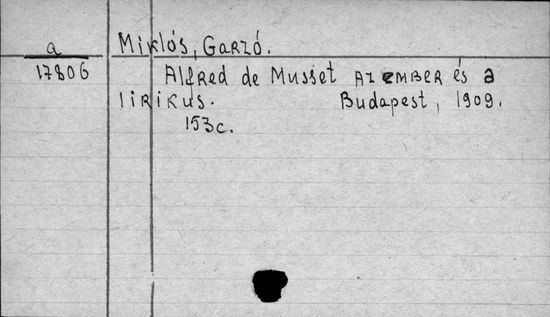 a
17806
Miklós, Garzó.
Alfred de Musset az ember és a
lirikus. Budapest, 1909.
153c.